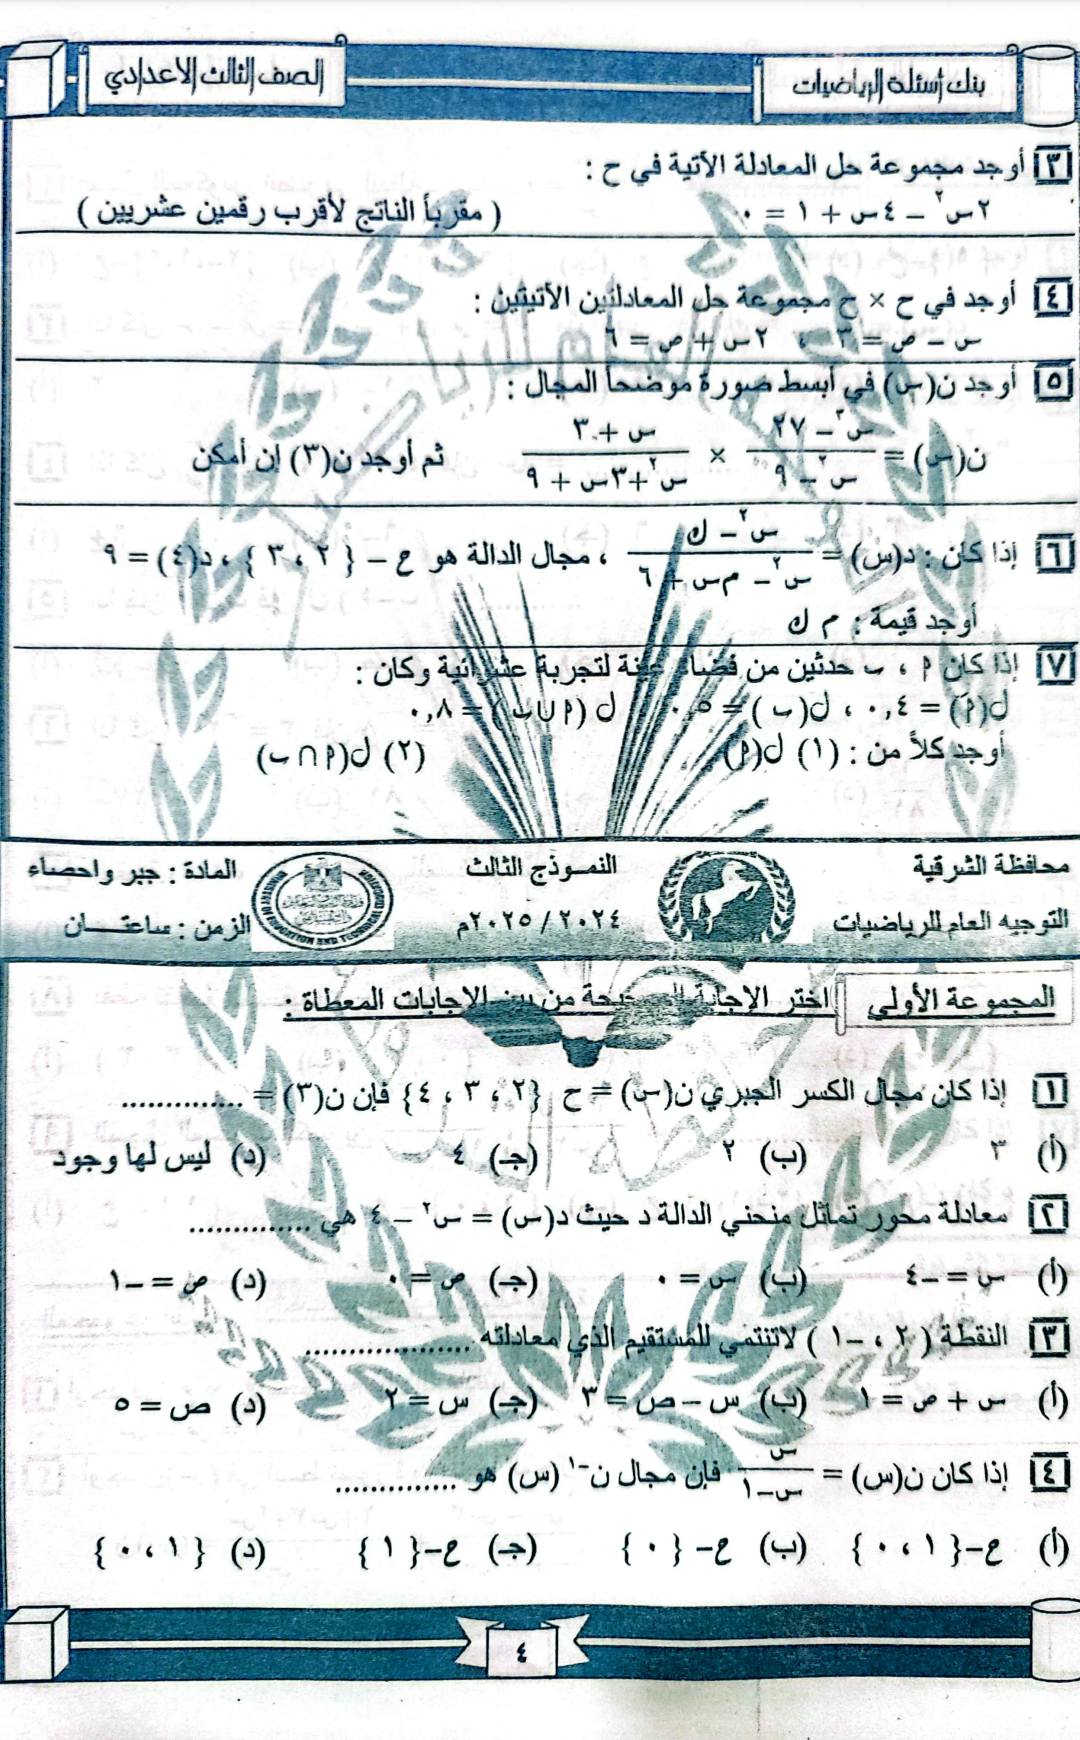 بنك أسئلة الرياضيات
الصف الثالث الاعدادي
٣ أوجد مجموعة حل المعادلة الآتية في ح :
٢س٢ – ٤س + ١ = ٠ ( مقرباً الناتج لأقرب رقمين عشريين )
٤ أوجد في ح × ح مجموعة حل المعادلتين الآتيتين :
س – ص = ٣ ، ٢س + ص = ٦
٥ أوجد ن(س) في أبسط صورة موضحاً المجال :
ن(س) = (س٣ – ٢٧)/(س٢ – ٩) × (س + ٣)/(س٢ + ٣س + ٩) ثم أوجد ن(٣) إن أمكن
٦ إذا كان : د(س) = (س٢ – ك)/(س٢ – م س + ٦) ، مجال الدالة هو ح – { ٢ ، ٣ } ، د(٤) = ٩
أوجد قيمة : م ك
٧ إذا كان م ، ب حدثين من فضاء عينة لتجربة عشوائية وكان :
ل(م) = ٠,٤ ، ل(ب) = ٠,٥ ل(م∪ب) = ٠,٨
أوجد كلاً من : (١) ل(م) (٢) ل(م∩ب)
محافظة الشرقية
التوجيه العام للرياضيات
النموذج الثالث
٢٠٢٤ / ٢٠٢٥م
المادة : جبر واحصاء
الزمن : ساعتـــان
المجموعة الأولي اختر الإجابة الصحيحة من بين الإجابات المعطاة :
١ إذا كان مجال الكسر الجبري ن(س) = ح {٢ ، ٣ ، ٤} فإن ن(٣) = ..............
(أ) ٣ (ب) ٢ (جـ) ٤ (د) ليس لها وجود
٢ معادلة محور تماثل منحني الدالة د حيث د(س) = س٢ – ٤ هي ..............
(أ) س = –٤ (ب) س = ٠ (جـ) ص = ٠ (د) ص = –١
٣ النقطة ( ٢ ، –١ ) لاتنتمي للمستقيم الذي معادلته ...................
(أ) س + ص = ١ (ب) س – ص = ٣ (جـ) س = ٢ (د) ص = ٥
٤ إذا كان ن(س) = س/(س–١) فإن مجال ن–١ (س) هو ..............
(أ) ح–{٠ ، ١} (ب) ح– {٠} (جـ) ح–{١} (د) {٠ ، ١}
٤